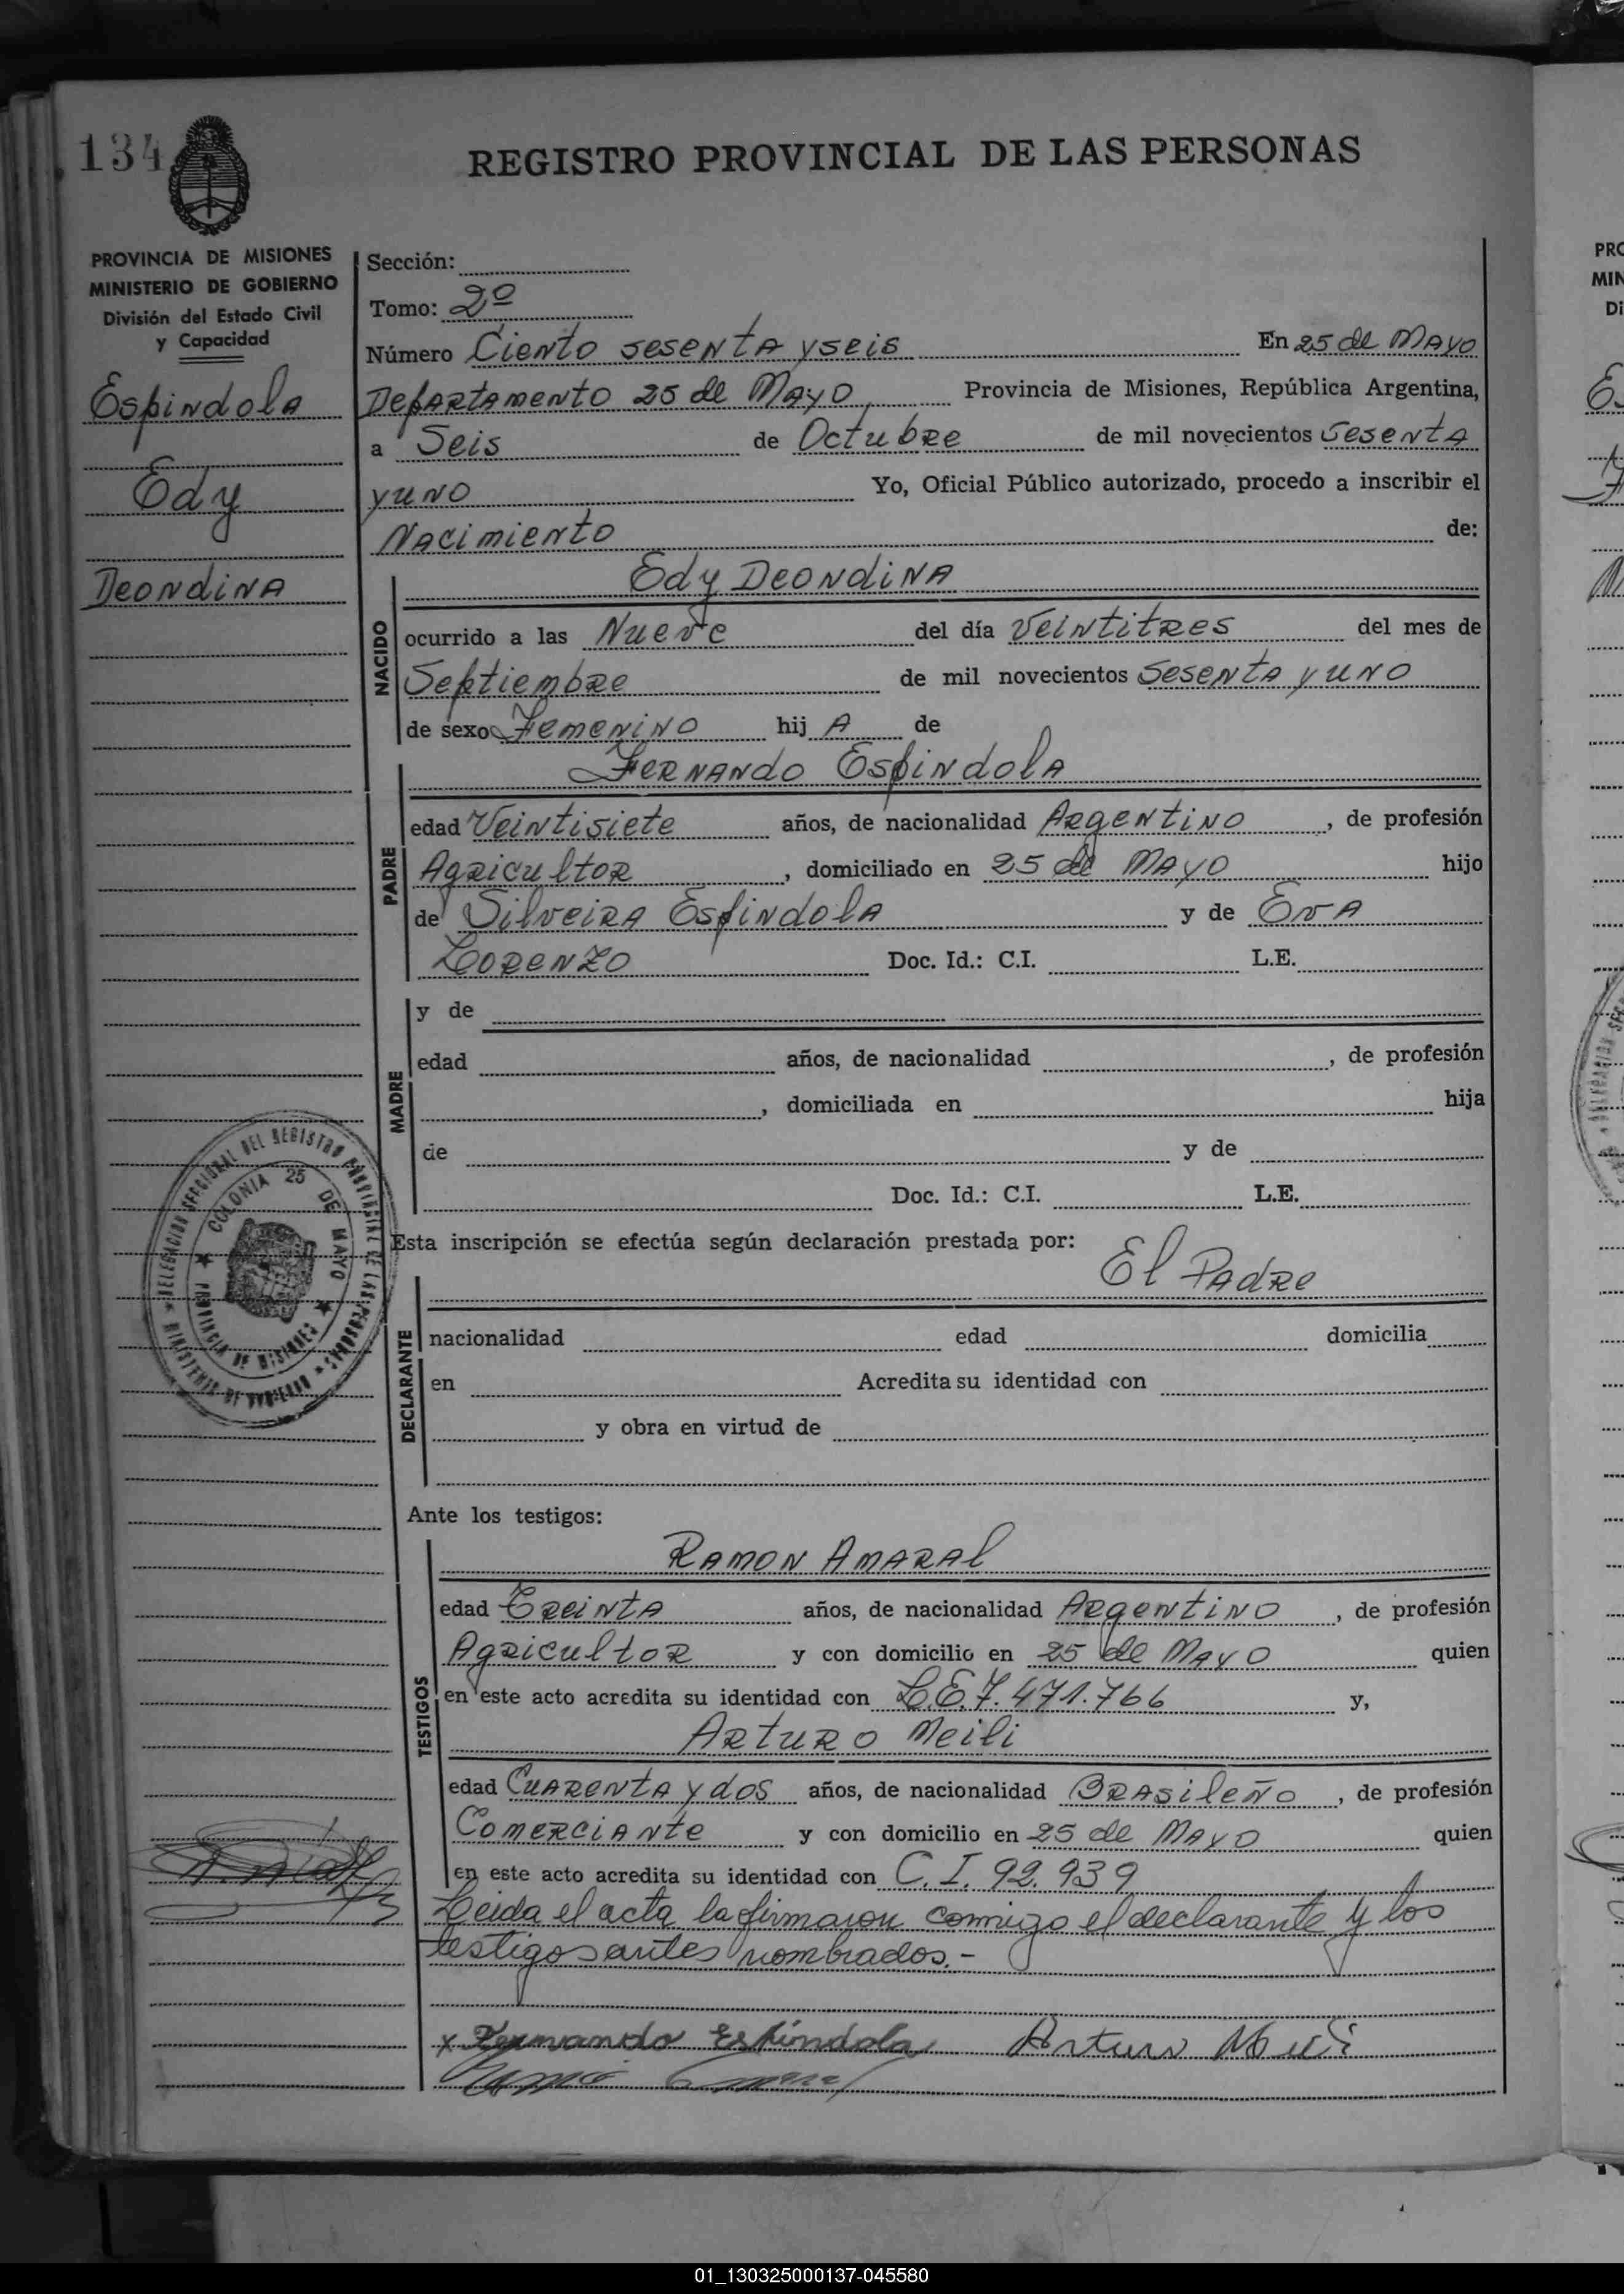 134
REGISTRO PROVINCIAL DE LAS PERSONAS
PROVINCIA DE MISIONES
MINISTERIO DE GOBIERNO
División del Estado Civil
y Capacidad
Espindola
Edy
Deondina
Sección:
Tomo: 2º
Número Ciento sesenta y seis En 25 de Mayo
Departamento 25 de Mayo, Provincia de Misiones, República Argentina,
a Seis de Octubre de mil novecientos sesenta
y uno Yo, Oficial Público autorizado, procedo a inscribir el
Nacimiento de:
NACIDO
Edy Deondina
ocurrido a las Nueve del día Veintitres del mes de
Septiembre de mil novecientos Sesenta y uno
de sexo Femenino hij A de
PADRE
Fernando Espindola
edad Veintisiete años, de nacionalidad Argentino, de profesión
Agricultor, domiciliado en 25 de Mayo hijo
de Silveira Espindola y de Eva
Lorenzo Doc. Id.: C.I. L.E.
MADRE
y de
edad años, de nacionalidad , de profesión
, domiciliada en hija
de y de
Doc. Id.: C.I. L.E.
DELEGACION SECCIONAL DEL REGISTRO PROVINCIAL DE LAS PERSONAS
MINISTERIO DE GOBIERNO
COLONIA 25 DE MAYO
PROVINCIA DE MISIONES
Esta inscripción se efectúa según declaración prestada por:
El Padre
DECLARANTE
nacionalidad edad domicilia
en Acredita su identidad con
y obra en virtud de
Ante los testigos:
TESTIGOS
Ramon Amaral
edad Treinta años, de nacionalidad Argentino, de profesión
Agricultor y con domicilio en 25 de Mayo quien
en este acto acredita su identidad con L.E.7.471.766 y,
Arturo Meili
edad Cuarenta y dos años, de nacionalidad Brasileño, de profesión
Comerciante y con domicilio en 25 de Mayo quien
en este acto acredita su identidad con C.I. 92.939
Leida el acta la firmaron comigo el declarante y los
testigos antes nombrados.-
x Fernando Espíndola Arturo Meili
01_130325000137-045580